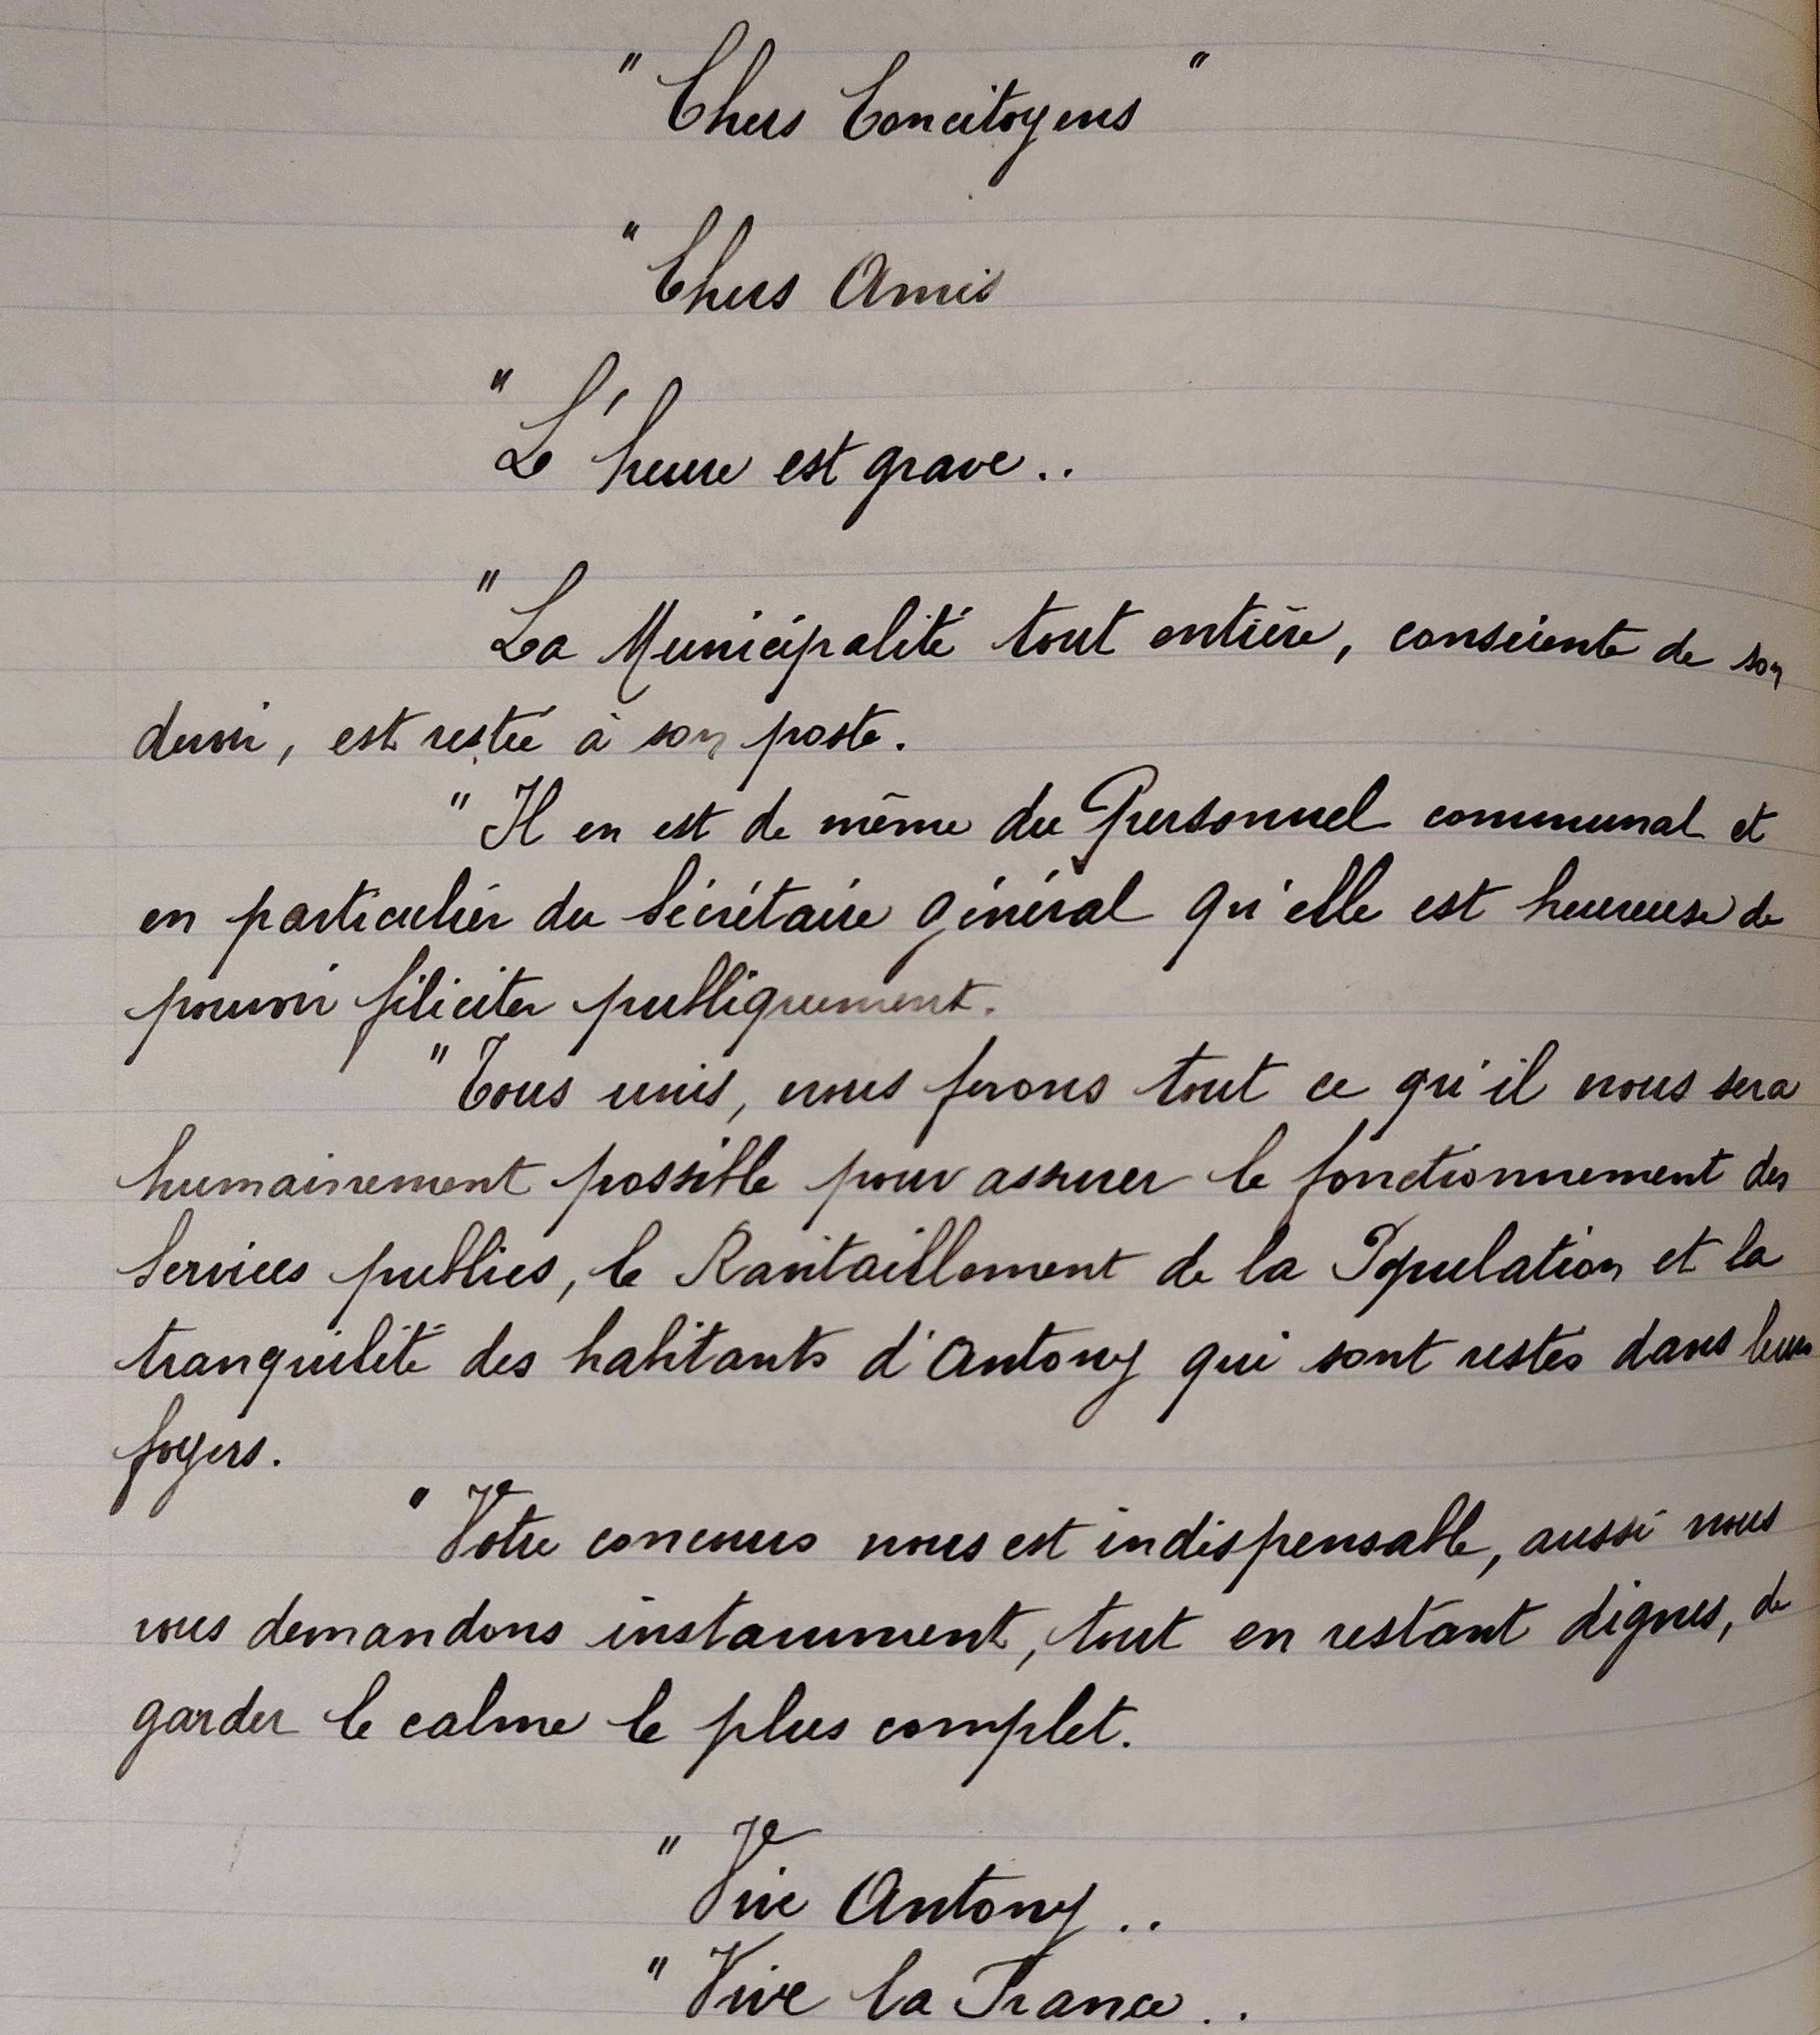 " Chers Concitoyens "
" Chers Amis
" L'heure est grave ..
" La Municipalité tout entière, consciente de son
devoir, est restée à son poste.
" Il en est de même du Personnel communal et
en particulier du Sécrétaire Général qu'elle est heureuse de
pouvoir féliciter publiquement.
" Tous unis, nous ferons tout ce qu'il nous sera
humainement possible pour assurer le fonctionnement des
Services publics, le Ravitaillement de la Population et la
tranquilité des habitants d'Antony qui sont restés dans leurs
foyers.
" Votre concours nous est indispensable, aussi nous
vous demandons instamment, tout en restant dignes, de
garder le calme le plus complet.
" Vive Antony ..
" Vive la France ..